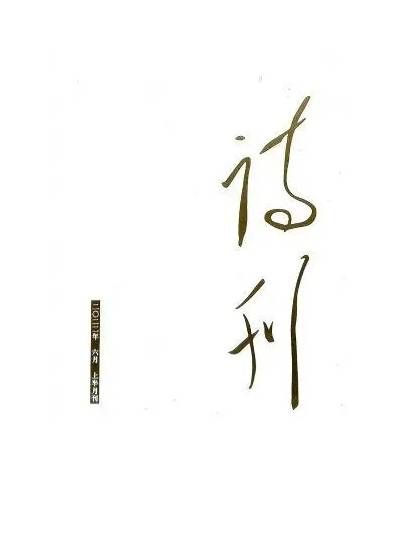 诗刊
二〇二二年 六月 上半月刊